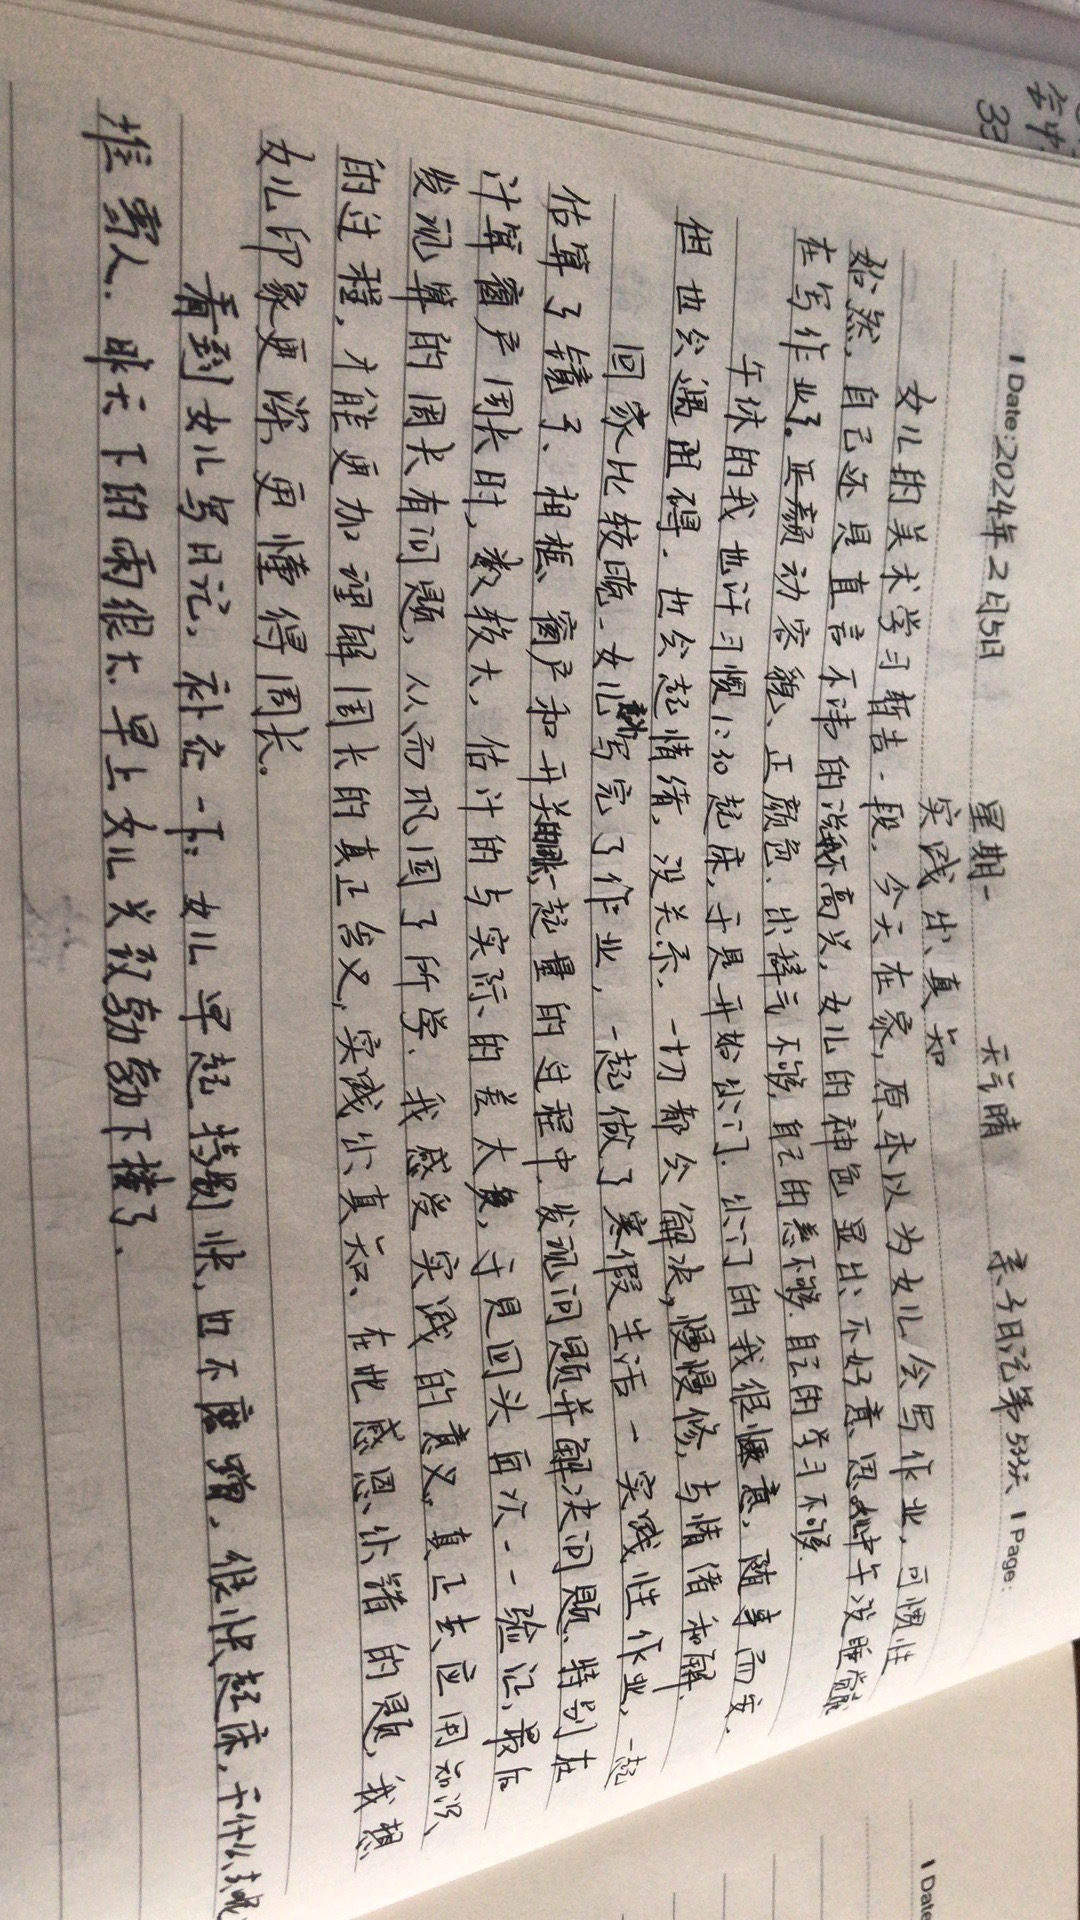 Date: 2024年2月5日 星期一 天气晴 亲子日记第533天 Page:
实践出真知
女儿的美术学习暂告一段。今天在家，原本以为女儿会写作业，可惯性
始然，自己还是直言不讳的说 不高兴，女儿的神色显出不好意思 中午没睡觉
在写作业了。正颜动容貌、正颜色、出辞气不够，自己的善不够，自己的学习不够。
午休的我也许习惯1:30起床，于是开始出门。出门的我很惬意，随事而安，
但也会遇阻碍。也会起情绪，没关系，一切都会解决，慢慢修，与情绪和解。
回家比较晚，女儿 写完了作业，一起做了寒假生活一实践性作业，一起
估算了镜子、相框、窗户和开关 一起量的过程中，发现问题并解决问题，特别在
计算窗户周长时，数较大，估计的与实际的差太多，于是回头再次一一验证，最后
发现算的周长有问题，从而巩固了所学。我感受实践的意义，真正去应用知识、
的过程，才能更加理解周长的真正含义，实践出真知。在此感恩出诸的题，我想
女儿印象更深，更懂得周长。
看到女儿写日记，补充一下：女儿早起特别快，也不磨蹭，很快起床，干什么
推雪人。昨天下的雨很大，早上女儿兴致勃勃下楼了。
会中
33
Date